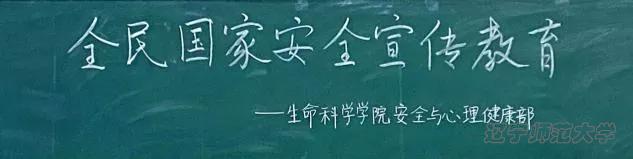 全民国家安全宣传教育
——生命科学学院安全与心理健康部
辽宁师范大学